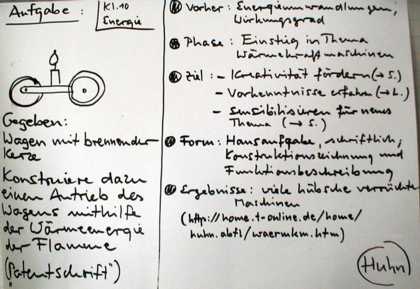 Aufgabe:
Kl. 10
Energie
Gegeben:
Wagen mit brennender
Kerze
Konstruiere dazu
einen Antrieb des
Wagens mithilfe
der Wärmeenergie
der Flamme
("Patentschrift")
Vorher: Energieumwandlungen,
Wirkungsgrad
Phase: Einstieg in Thema
Wärmekraftmaschinen
Ziel: - Kreativität fördern (→S.)
- Vorkenntnisse erfahren (→L.)
- Sensibilisieren für neues
Thema (→S.)
Form: Hausaufgabe, schriftlich,
Konstruktionszeichnung und
Funktionsbeschreibung
Ergebnisse: viele hübsche verrückte
Maschinen
(http://home.t-online.de/home/
huhn.abtl/waermkm.htm)
Huhn